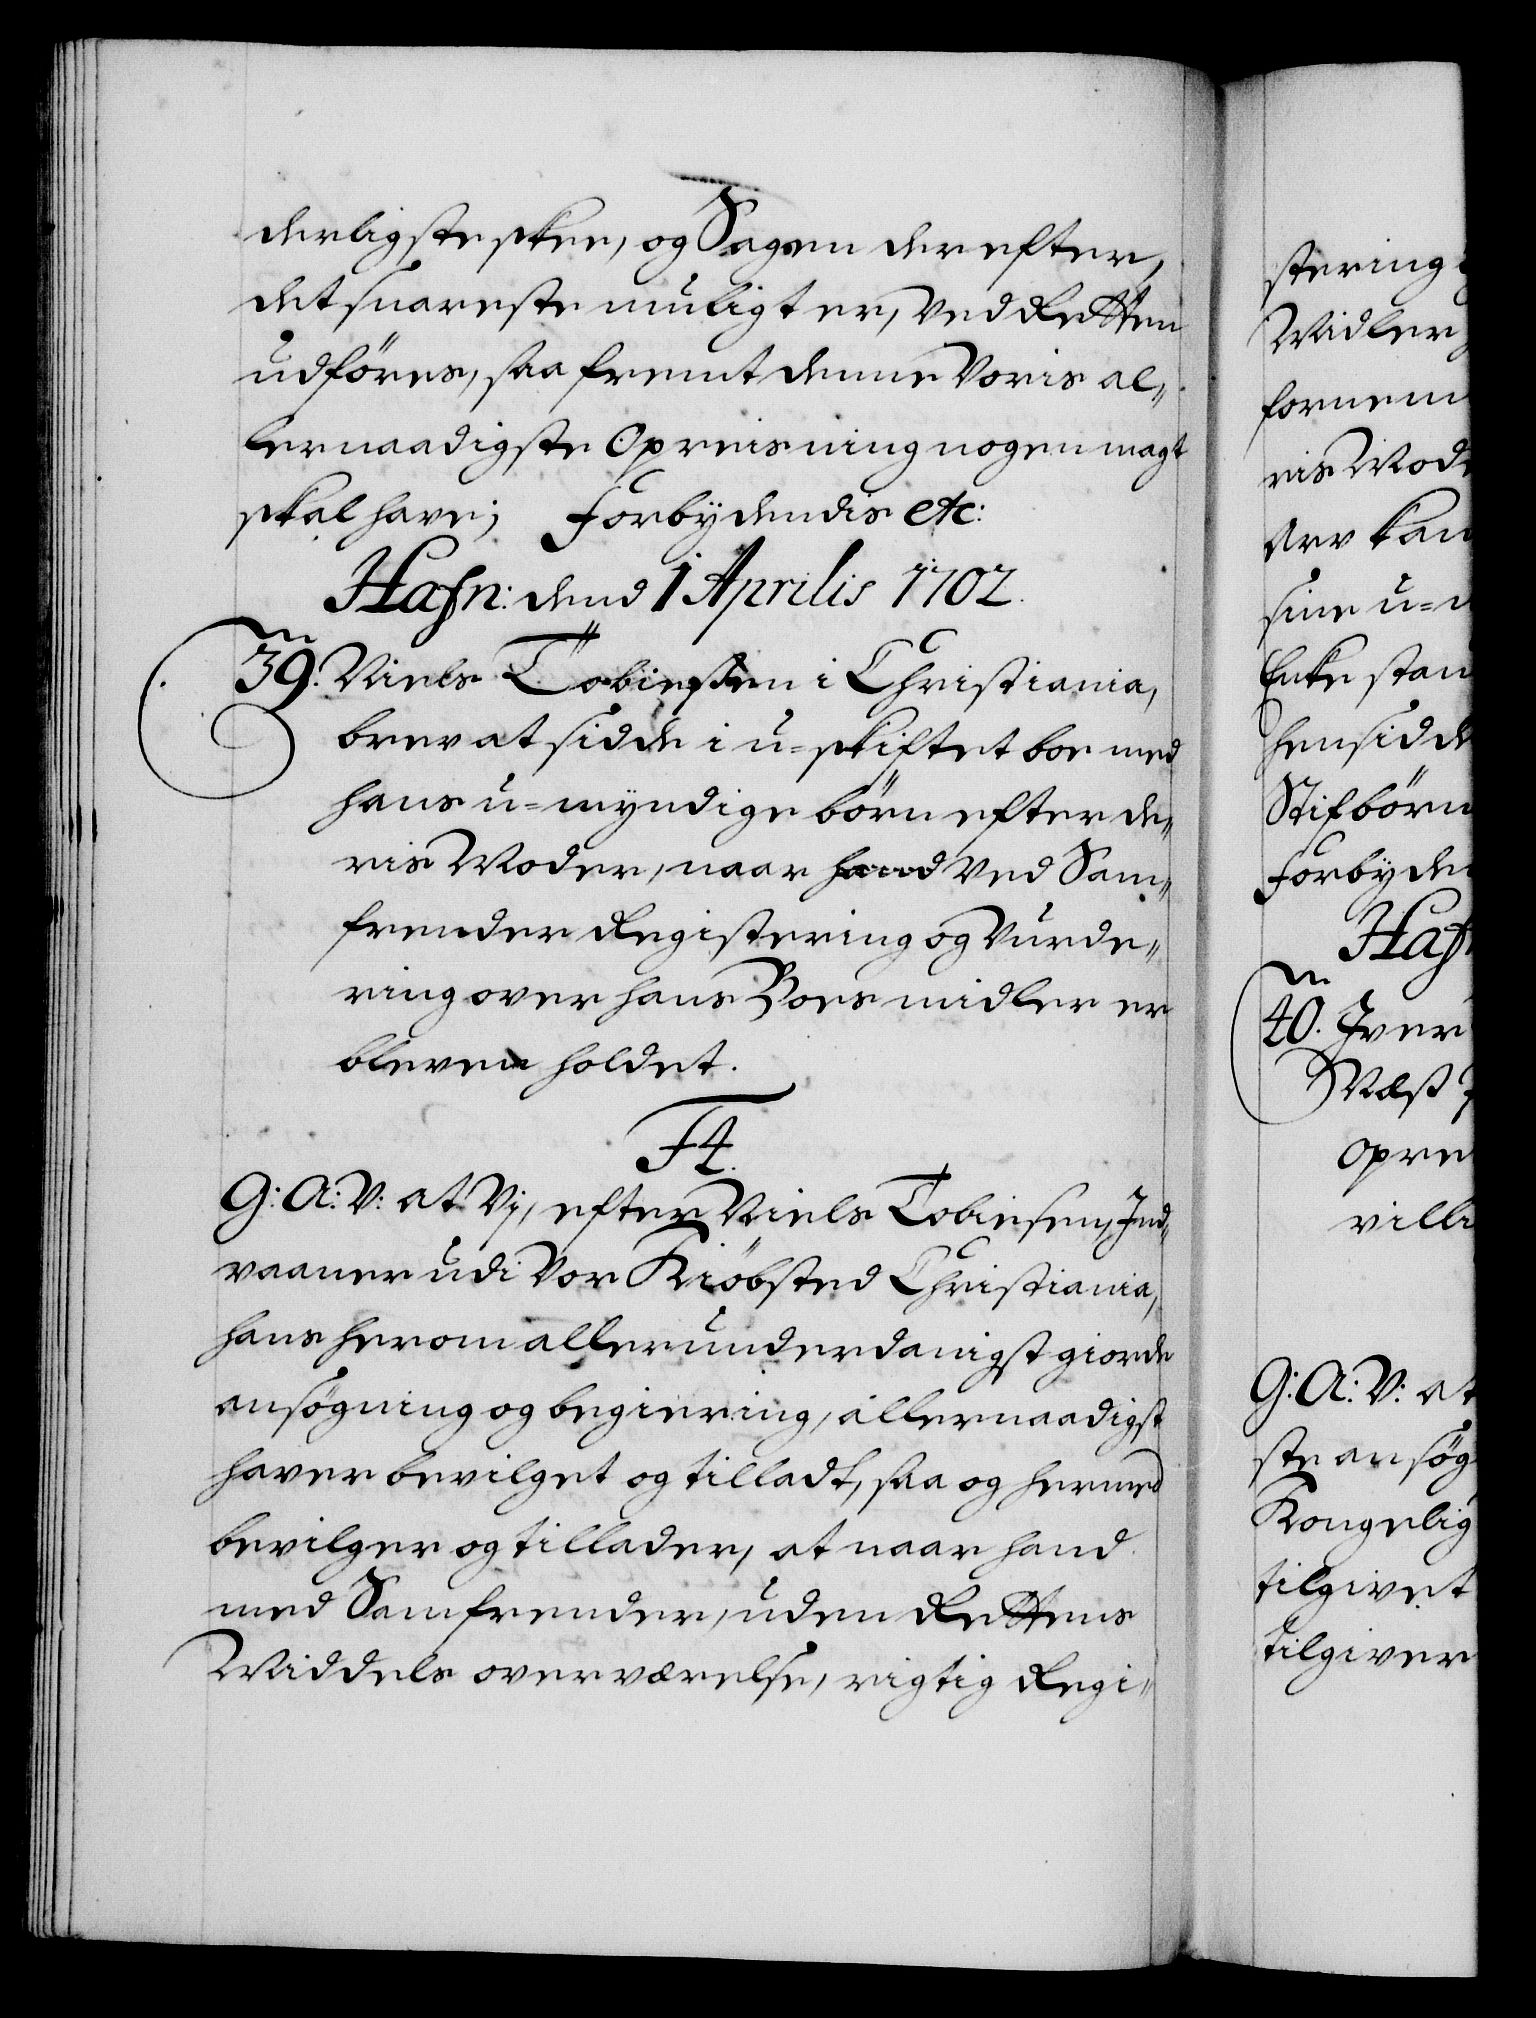 derligste skee, og Sagen derefter,
det snareste muligt er, ved Retten
udföres, saafremt denne Voris al„
lernaadigste Opreisning nogen magt
skal have; Forbydendis etc:
Hafn: dend 1 Aprilis 1702.
39. Niels Tobiesen i Christiania,
brev at sidde i u-skiftet boe med
hans u-myndige börn efter de„
ris Moder, naar hand ved Sam„
frender Registering og Vurde„
ring over hans Boes midler er
bleven holdet.
F4.
G: A: V: at Vj, efter Niels Tobiesen, Ind„
vaaner udi Vor Kiöbsted Christiania,
hans herom allerunderdanigst giorde
ansøgning og begiering, allernaadigst
haver bevilget og tilladt, saa og hermed
bevilger og tillader, at naar hand
med Samfrender, uden Rettens
Middels overværelse, rigtig Regi„
stering
Midler
fornem
ris Mod
Arv kan
sine u-
Enke stan
hensidde
Stifbörn
Forbyde
Haf
40. Iver
Næss
opre
villi
G: A: V: at
ste ansøg
Kongelig
tilgivet
tilgiver